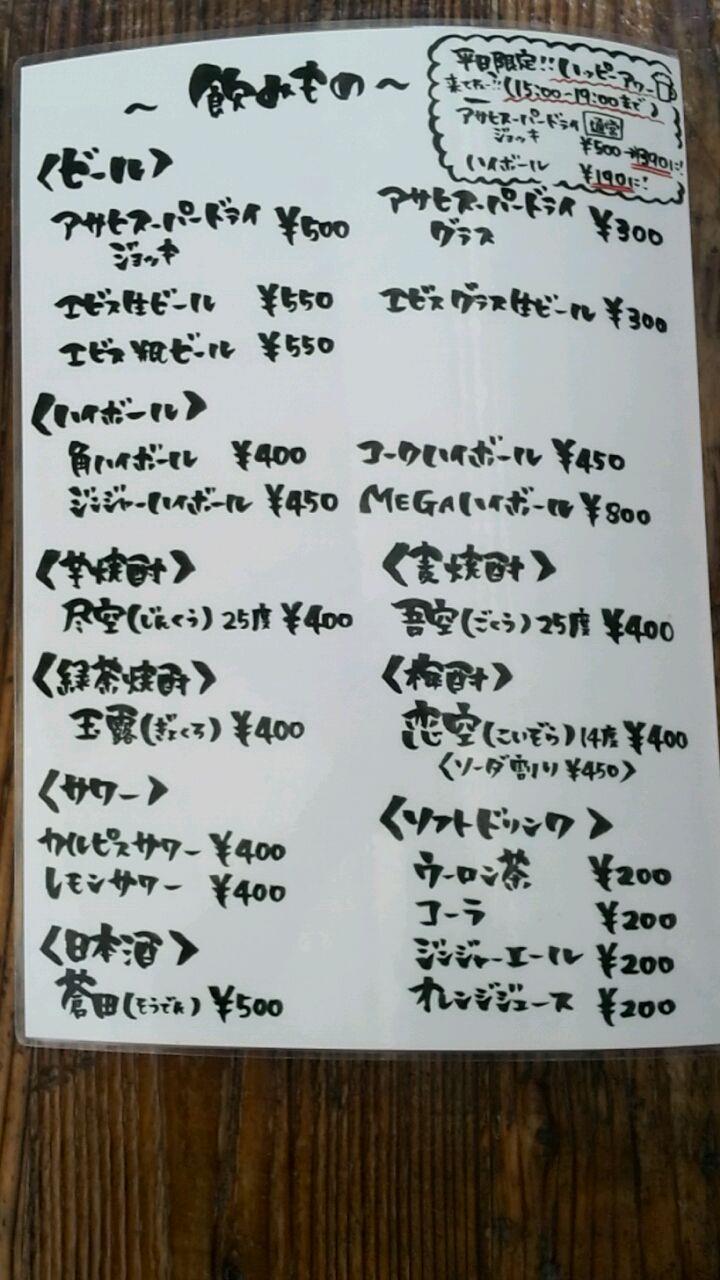 ~ 飲みもの ~
平日限定!! ハッピーアワー
来てねー!! (15:00-19:00まで)
アサヒスーパードライ 通常
ジョッキ ¥500→¥390に!
ハイボール ¥190に!
〈ビール〉
アサヒスーパードライ ¥500
ジョッキ
アサヒスーパードライ ¥300
グラス
エビス生ビール ¥550
エビスグラス生ビール ¥300
エビス瓶ビール ¥550
〈ハイボール〉
角ハイボール ¥400
コークハイボール ¥450
ジンジャーハイボール ¥450
MEGAハイボール ¥800
〈芋焼酎〉
尽空(じんくう) 25度 ¥400
〈麦焼酎〉
吾空(ごくう) 25度 ¥400
〈緑茶焼酎〉
玉露(ぎょくろ) ¥400
〈梅酎〉
恋空(こいぞら) 14度 ¥400
〈ソーダ割り ¥450〉
〈サワー〉
カルピスサワー ¥400
レモンサワー ¥400
〈日本酒〉
蒼田(そうでん) ¥500
〈ソフトドリンク〉
ウーロン茶 ¥200
コーラ ¥200
ジンジャーエール ¥200
オレンジジュース ¥200